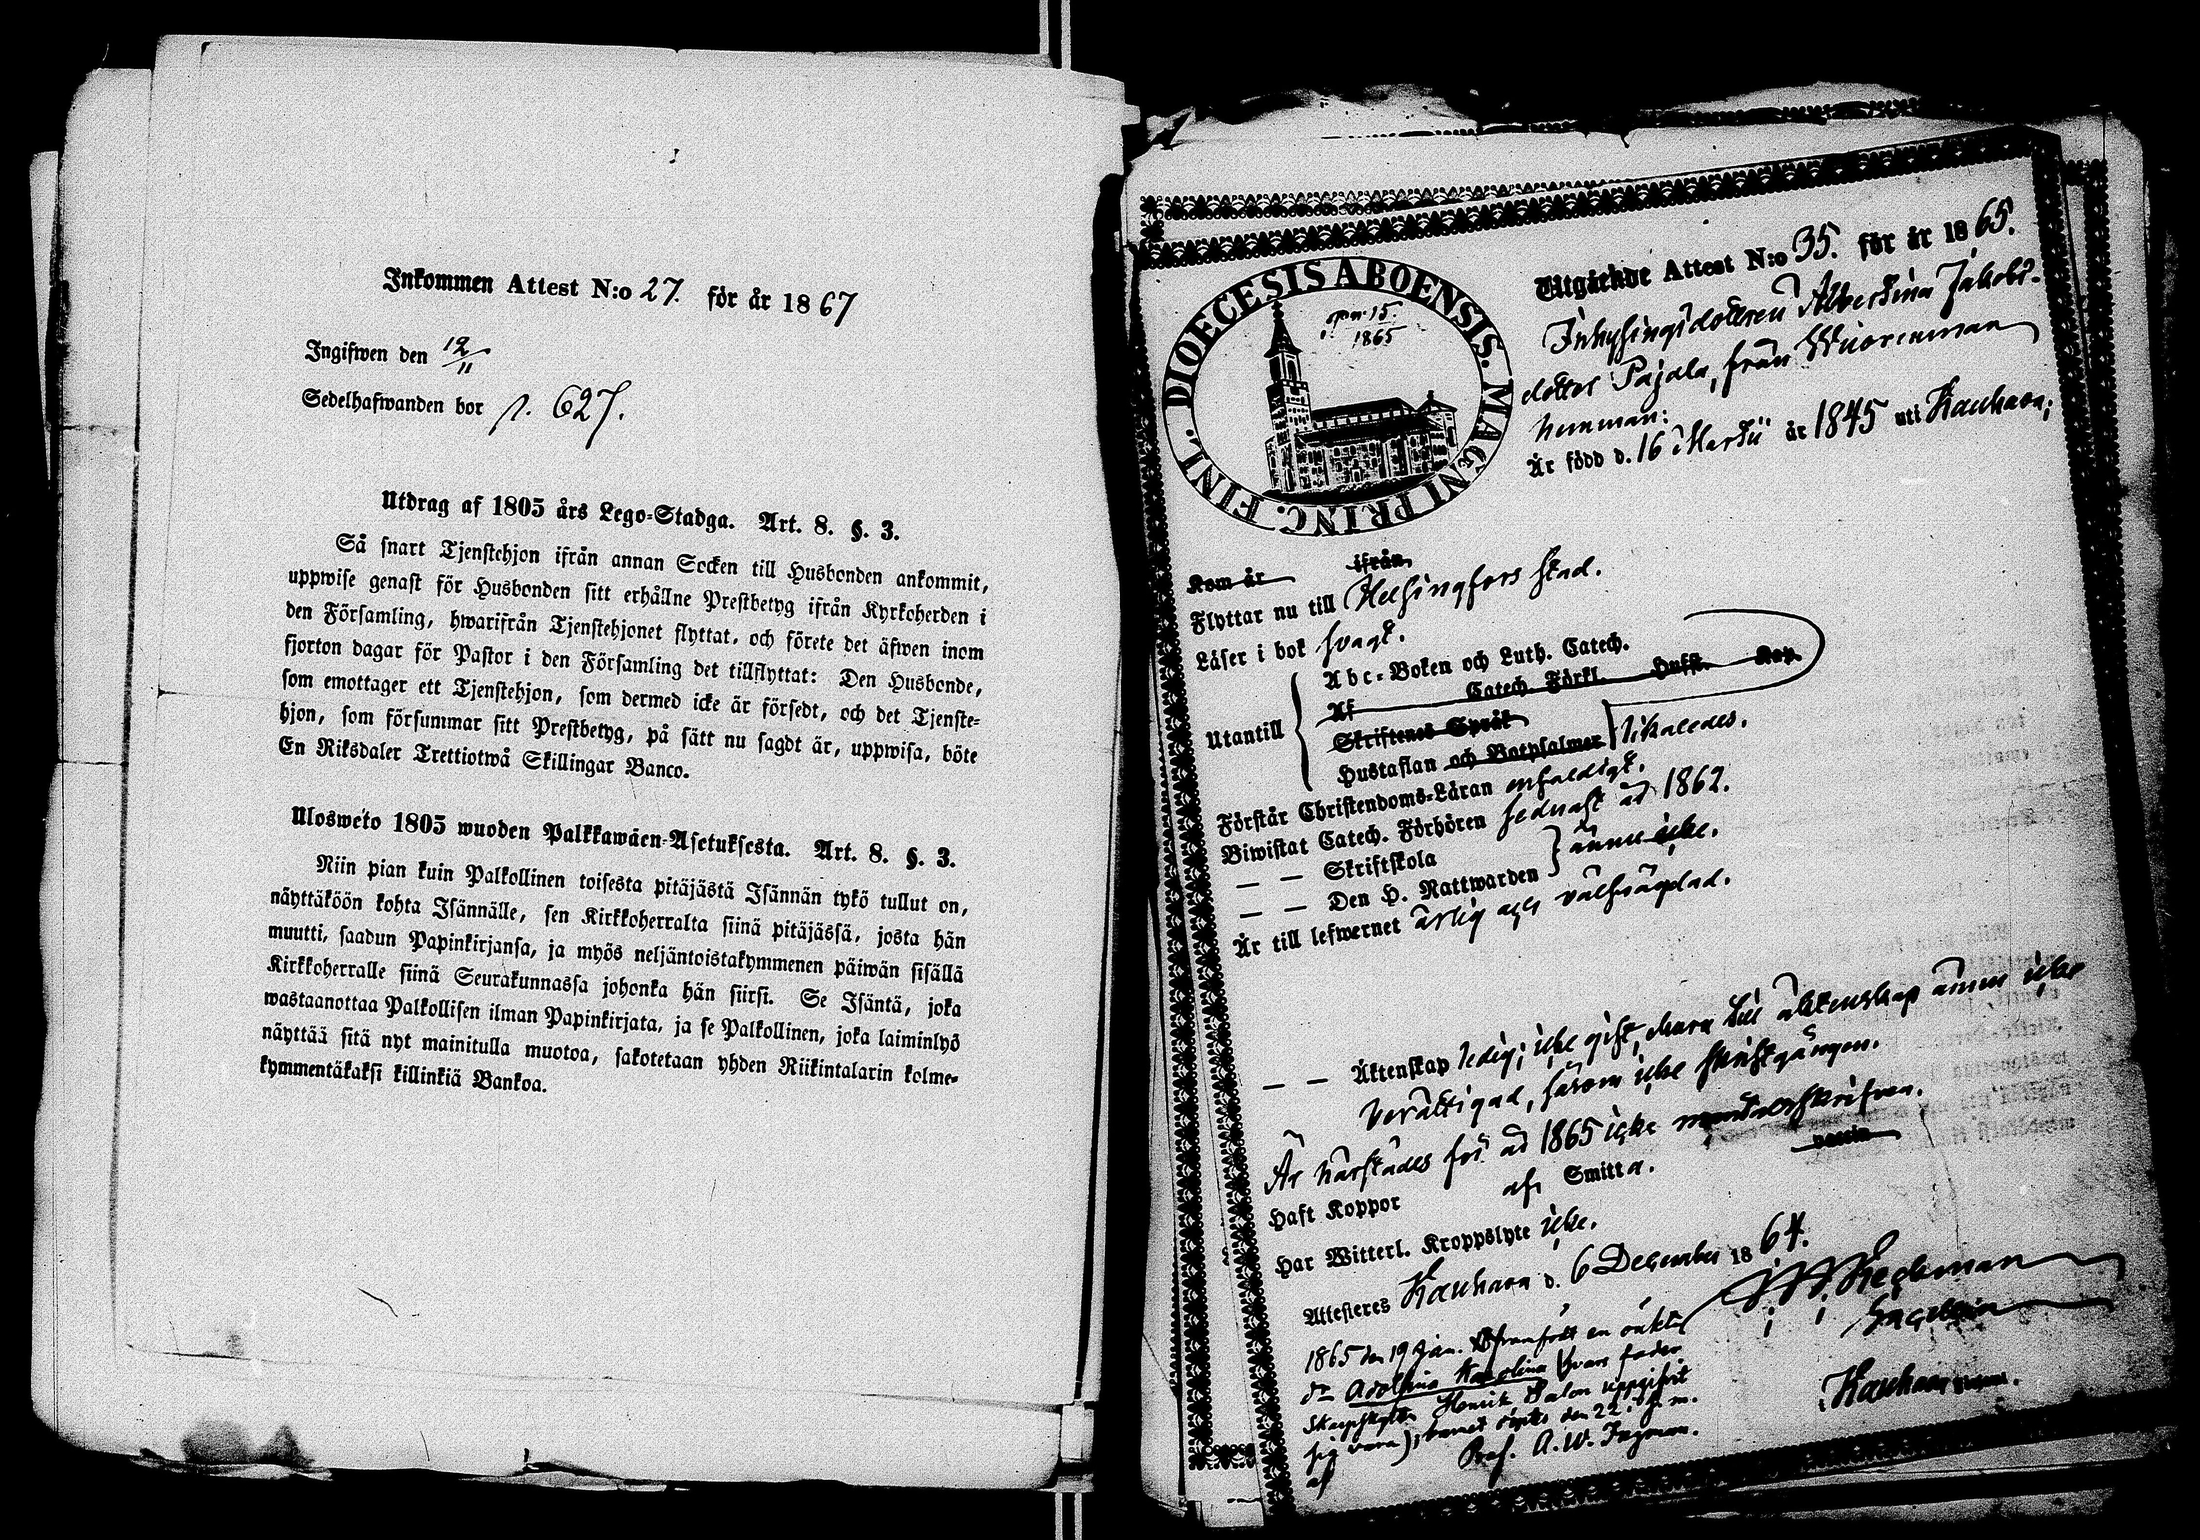 Inkommen Attest N:o 27. för år 1867
Ingifwen den 12/11
Sedelhafwanden bor p. 627.
Utdrag af 1805 års Lego-Stadga. Art. 8. §. 3.
Så snart Tjenstehjon ifrån annan Socken till Husbonden ankommit,
uppwise genast för Husbonden sitt erhållne Prestbetyg ifrån Kyrkoherden i
den Församling, hwarifrån Tjenstehjonet flyttat, och förete det äfwen inom
fjorton dagar för Pastor i den Församling det tillflyttat: Den Husbonde,
som emottager ett Tjenstehjon, som dermed icke är försedt, och det Tjenste-
hjon, som försummar sitt Prestbetyg, på sätt nu sagdt är, uppwisa, böte
En Riksdaler Trettiotwå Skillingar Banco.
Uloswéto 1805 wuoden Palkkawäen-Asetuksesta. Art. 8. §. 3.
Niin pian kuin Palkollinen toisesta pitäjästä Isännän tykö tullut on,
näyttäköön kohta Isännälle, sen Kirkkoherralta siinä pitäjässä, josta hän
muutti, saadun Papinkirjansa, ja myös neljäntoistakymmenen päiwän sisällä
Kirkkoherralle siinä Seurakunnassa johonka hän siirsi. Se Isäntä, joka
wastaanottaa Palkollisen ilman Papinkirjata, ja se Palkollinen, joka laiminlyö
näyttää sitä nyt mainitulla muotoa, sakotetaan yhden Riikintalarin kolme-
kymmentäkaksi killinkiä Bankoa.
DIOECESIS ABOENSIS. MAGNI PRINC. FINL.
15
1865
Utgående Attest N:o 35. för år 1865.
Inhysingsdottren Albertina Jakobs-
dotter Pajala, från Wuorenmaa
hemman:
Är född d. 16 Martii år 1845 uti Kauhava;
Kom år ifrån
Flyttar nu till Helsingfors stad.
Läser i bok svagt.
Abc-Boken och Luth. Catech.
Af Catech. Förkl. Hufst. Kap.
Utantill
Skriftenes Språk
Hustaflan och Botpsalmer likaledes.
Förstår Christendoms-Läran enfaldigt.
Biwistat Catech. Förhören sednast år 1862.
— — Skriftskola
— — Den H. Nattwarden ännu icke.
Är till lefwernet ärlig och välfrägdad.
— — Äktenskap ledig; icke gift, ehuru till äktenskap ännu icke
berättigad, såsom icke skriftgången.
Är härstädes för år 1865 icke mantalsskrifven.
Haft Koppor af Smitta.
Har Witterl. Kroppslyte icke.
Attesteras Kauhava d. 6 December 1864.
1865 den 19 Jan. framfödt en oäkta
dr Adolfina Karolina hvars fader
Skarpskytten Henrik Salon uppgifvit
sig vara); barnet döptes den 22 i s. m.
af Prof. A. W. Ingman.
Kauhava